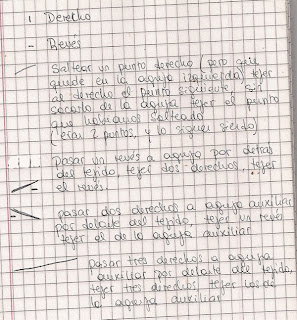 | Derecho
- Revés
Saltear un punto derecho (pero que
quede en la aguja izquierda) tejer
al derecho el punto siguiente, sin
sacarlo de la aguja tejer el punto
que habíamos salteado
(eran 2 puntos, y lo siguen siendo)
Pasar un revés a aguja por detrás
del tejido, tejer dos derechos, tejer
el revés.
pasar dos derechos a aguja auxiliar
por delante del tejido, tejer un revés
tejer el de la aguja auxiliar
pasar tres derechos a aguja
auxiliar por delante del tejido,
tejer tres derechos, tejer los de
la aguja auxiliar